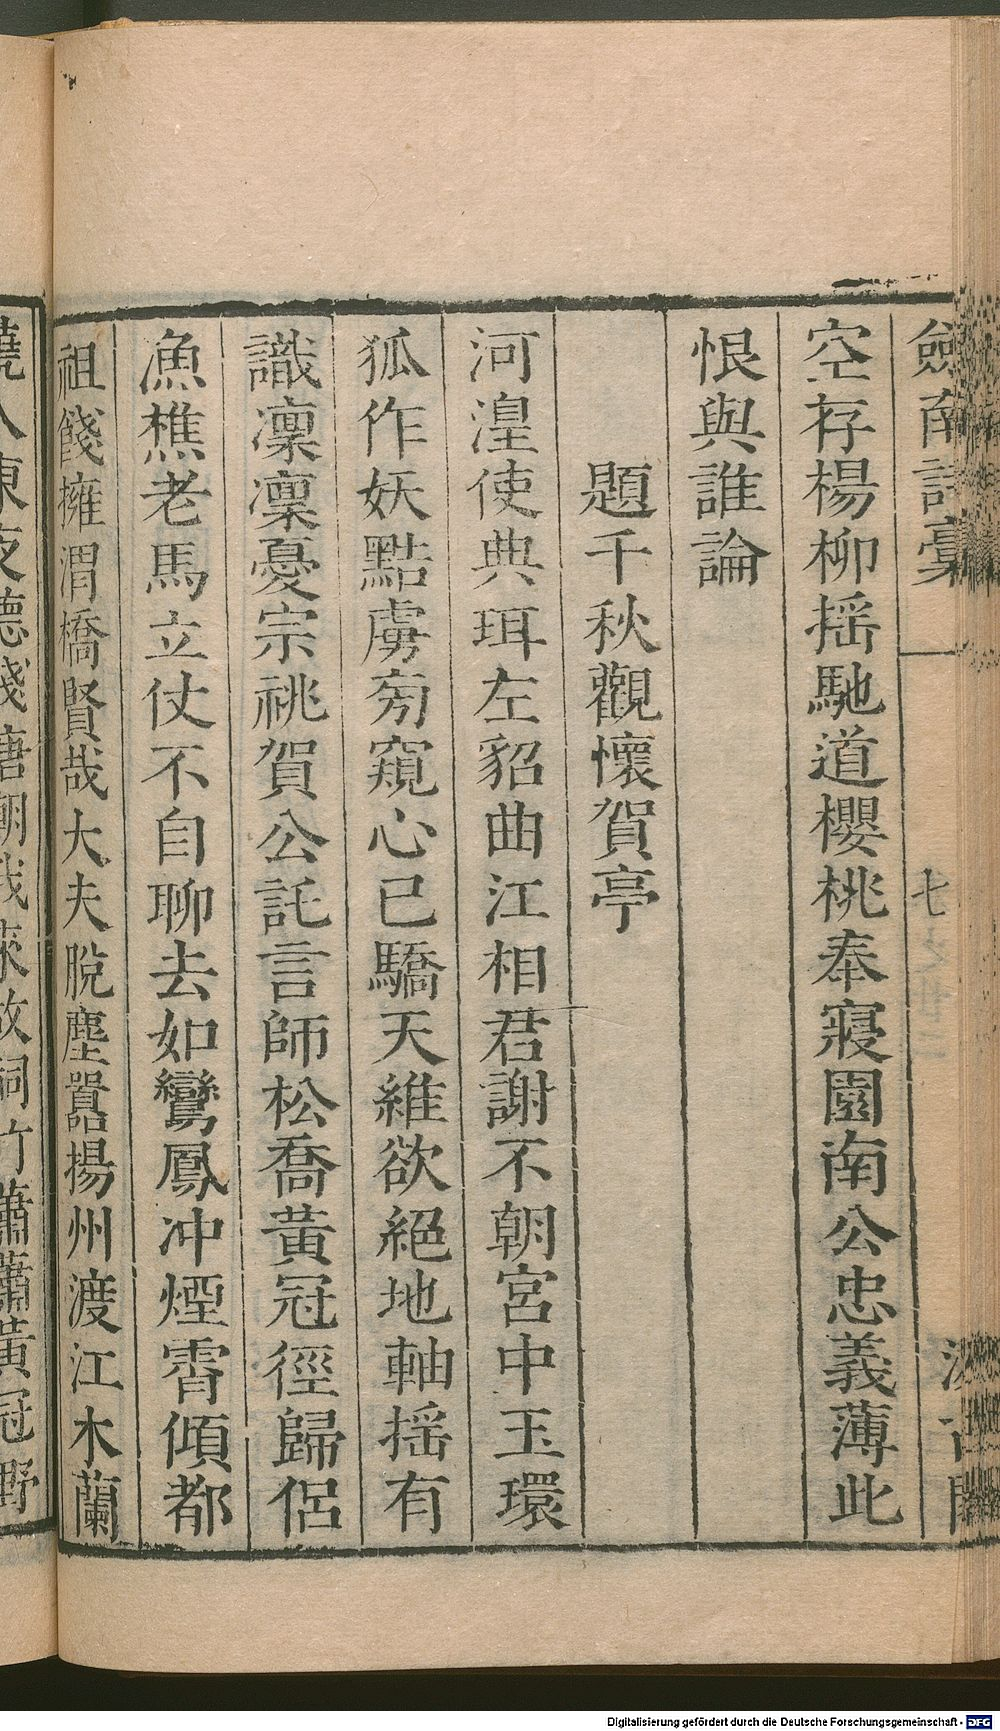 劍南詩稾
空存楊柳揺馳道櫻桃奉寢園南公忠義薄此
恨與誰論
題千秋觀懷賀亭
河湟使典珥左貂曲江相君謝不朝宮中玉環
狐作妖黠虜旁窺心已驕天維欲絕地軸揺有
識凜凜憂宗祧賀公託言師松喬黃冠徑歸侶
漁樵老馬立仗不自聊去如鸞鳳冲煙霄傾都
祖餞擁渭橋賢哉大夫脫塵囂揚州渡江木蘭
橈入東夜聽錢唐潮我來故祠竹蕭蕭黃冠野
Digitalisierung gefördert durch die Deutsche Forschungsgemeinschaft - DFG